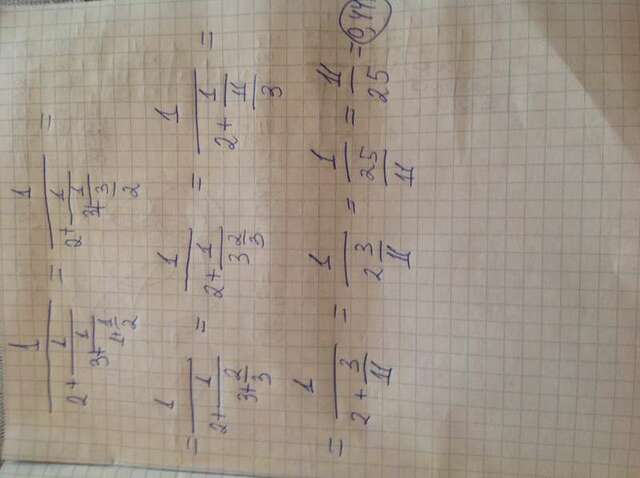 1/(2+1/(3+1/(1+1/2))) = 1/(2+1/(3+1/(3/2))) =
= 1/(2+1/(3+2/3)) = 1/(2+1/(3 2/3)) = 1/(2+1/(11/3)) =
= 1/(2+3/11) = 1/(2 3/11) = 1/(25/11) = 11/25 = 0,44